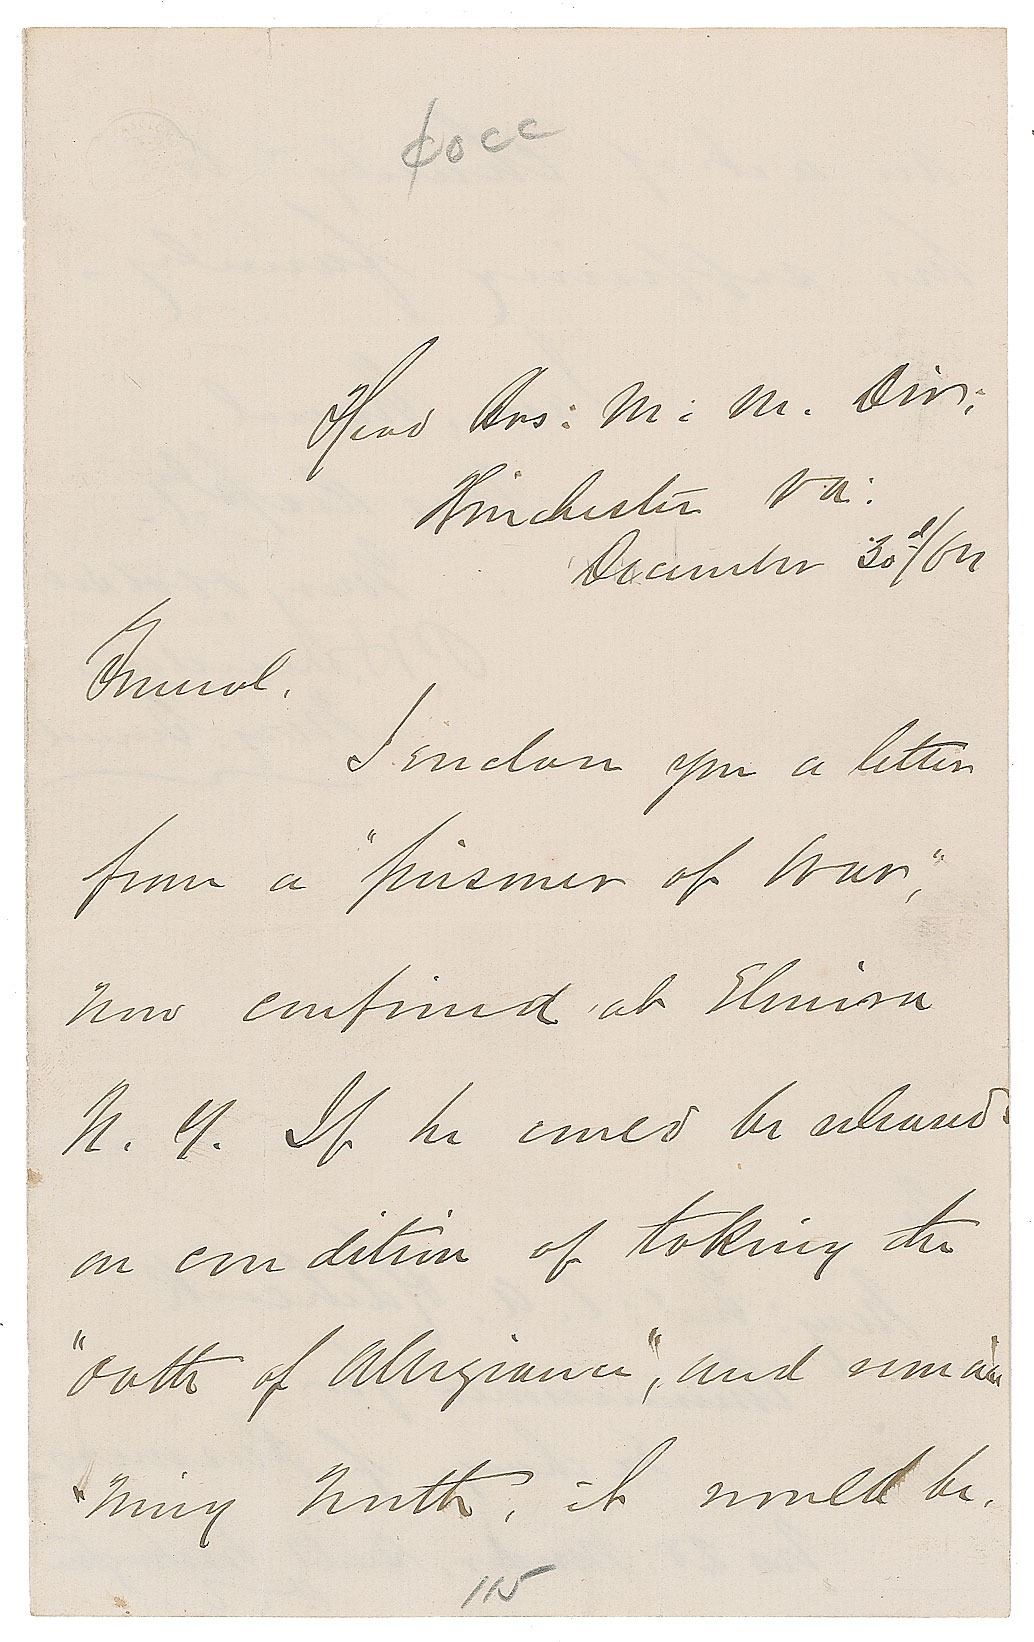 Head Qrs: M: M. Div:
Winchester Va:
December 30th/64
General.
I enclose you a letter
from a "prisoner of War,"
now confined at Elmira
N. Y. If he could be released
on condition of taking the
"oath of Allegiance", and remai
"ning North, it would be.
115